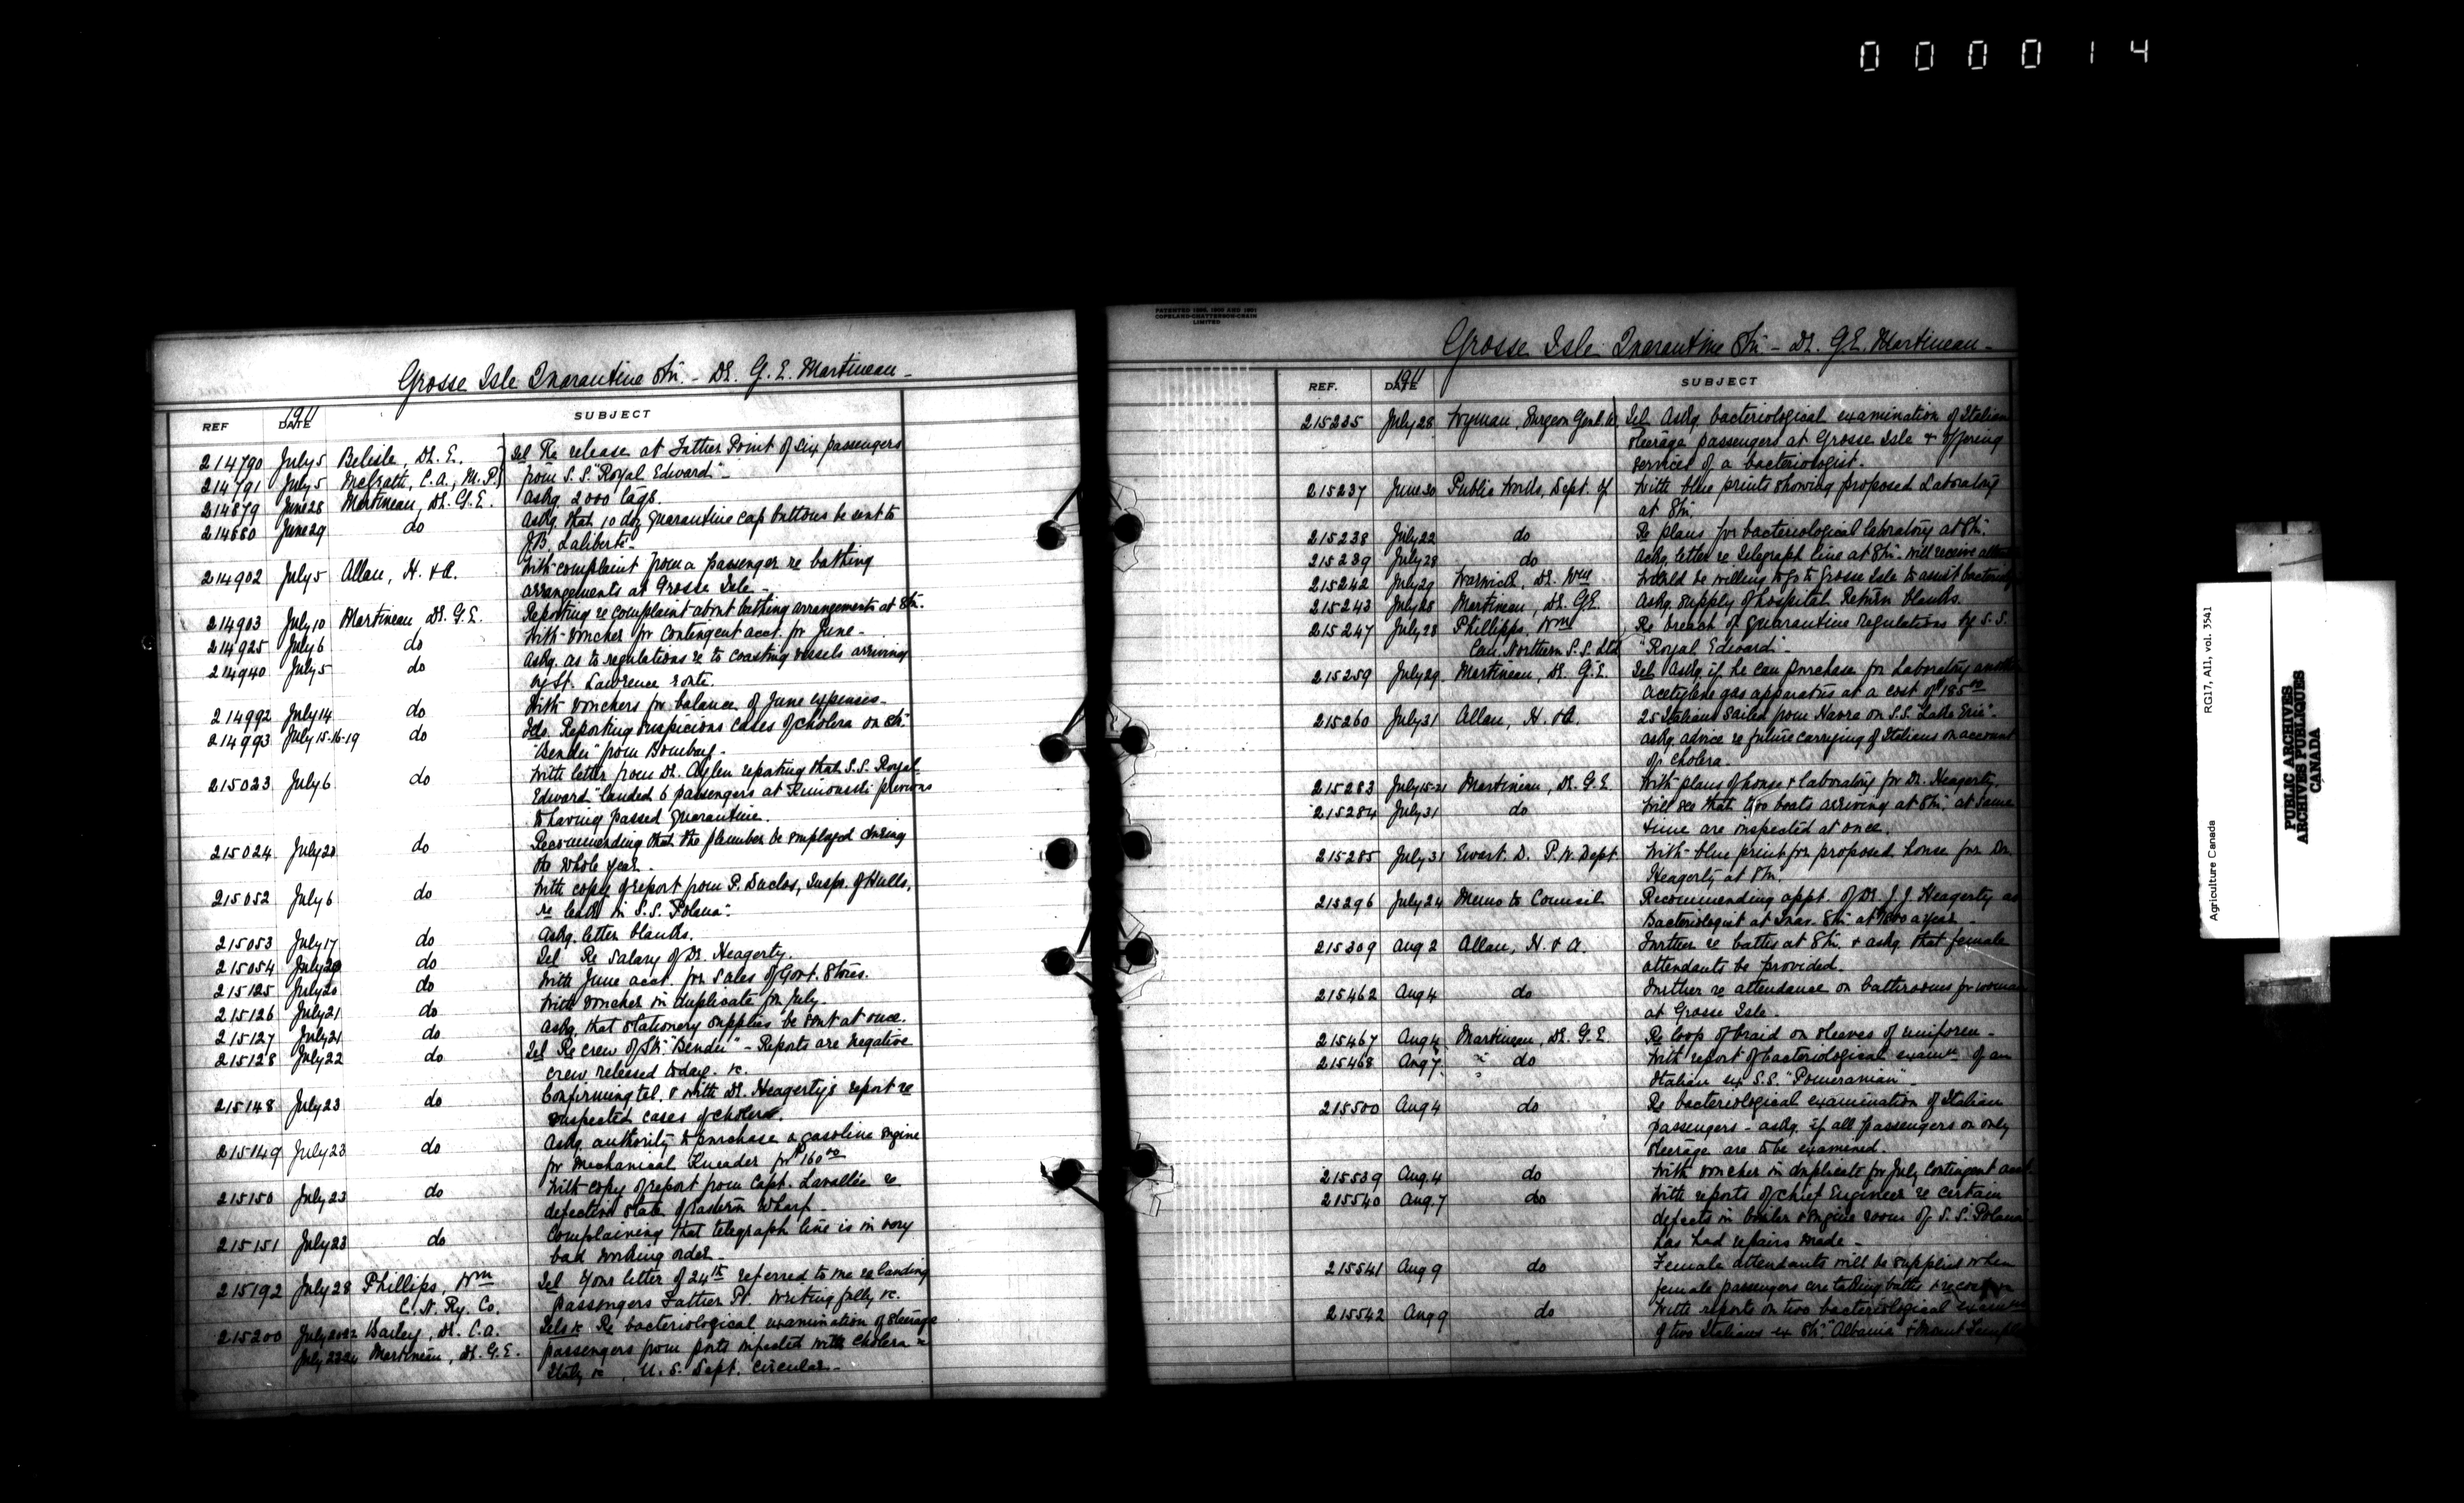 000014
Grosse Isle Quarantine Stn. - Dr. G. E. Martineau -
REF 1911 DATE SUBJECT
214790 July 5 Belisle, Dr. E. Tel Re release at Father Point of six passengers
214791 July 5 McGrath, C.A., M.P. from S.S. "Royal Edward" -
214879 June 28 Martineau, Dr. G.E. Askg. 2000 tags.
214880 June 29 do Askg. that 10 doz quarantine cap buttons be sent to
J.B. Laliberte -
214902 July 5 Allan, H. & A. With complaint from a passenger re bathing
arrangements at Grosse Isle -
214903 July 10 Martineau Dr. G.E. Reporting re complaint about bathing arrangements at Stn.
214925 July 6 do With voucher for Contingent acct. for June -
214940 July 5 do Askg. as to regulations re to coasting vessels arriving
by St. Lawrence route.
214992 July 14 do With vouchers for balance of June expenses -
214993 July 15-16-19 do Tels. Reporting suspicious cases of cholera on Str.
"Bendu" from Bombay -
215023 July 6 do With letter from Dr. Aylen reporting that S.S. Royal
Edward" landed 6 passengers at Rimouski previous
to having passed quarantine.
215024 July 20 do Recommending that the plumber be employed during
the whole year -
215052 July 6 do With copy of report from P. Duclos, Insp. of Hulls,
re leak in S.S. Polana".
215053 July 17 do Askg. letter blanks.
215054 July 20 do Tel Re salary of Dr. Heagerty.
215125 July 20 do With June acct. for Sales of Govt. Stores.
215126 July 21 do With voucher in duplicate for July.
215127 July 21 do Askg. that stationery supplies be sent at once.
215128 July 22 do Tel Re crew of Str. "Bendu" - Reports are negative
crew released today. &c.
215148 July 23 do Confirming tel. & with Dr. Heagerty's report re
suspected cases of cholera.
215149 July 23 do Askg authority to purchase a gasoline engine
for Mechanical Kneader for $160.00
215150 July 23 do With copy of report from Capt. Lavallée re
defective state of Eastern Wharf -
215151 July 23 do Complaining that telegraph line is in very
bad working order -
215192 July 28 Phillips, Wm Tel Your letter of 24th referred to me re landing
C.N. Ry. Co. passengers Father Pt. Writing fully &c.
215200 July 20-22 Bailey, Dr. C.A. Tels &c Re bacteriological examination of steerage
July 22-24 Martineau, Dr. G.E. passengers from ports infected with Cholera -
Italy &c, U.S. Dept. circular -
PATENTED 1896, 1899 AND 1901
COPELAND-CHATTERSON-CRAIN
LIMITED
Grosse Isle Quarantine Stn - Dr. G.E. Martineau -
REF. 1911 DATE SUBJECT
215235 July 28 Wyman, Surgeon Genl. Tel Askg. bacteriological examination of Italian
steerage passengers at Grosse Isle & offering
services of a bacteriologist.
215237 June 30 Public Works, Dept. of With blue prints showing proposed Laboratory
at Stn.
215238 July 22 do Re plans for bacteriological laboratory at Stn.
215239 July 28 do Askg. letter re telegraph line at Stn. will receive
215242 July 29 Warwick, Dr. Wm Would be willing to go to Grosse Isle to assist
215243 July 28 Martineau, Dr. G.E. Askg. supply of hospital Return blanks.
215247 July 28 Phillipps, Wm Re breach of quarantine regulations by S.S.
Can. Northern S.S. Ltd "Royal Edward" -
215259 July 29 Martineau, Dr. G.E. Tel Askg. if he can purchase for Laboratory
acetylene gas apparatus at a cost of $185.00
215260 July 31 Allan, H. & A. 25 Italians sailed from Havre on S.S. "Lake Erie" -
askg. advice re future carrying of Italians on account
of cholera -
215283 July 15-21 Martineau, Dr. G.E. With plans of house & laboratory for Dr. Heagerty.
215284 July 31 do Will see that two boats arriving at Stn. at same
time are inspected at once.
215285 July 31 Ewart D. P.W. Dept. With blue print for proposed house for Dr.
Heagerty at Stn.
215296 July 24 Memo to Council Recommending appt. of Dr. J. J. Heagerty as
Bacteriologist at Stn. at $1800 a year -
215309 Aug 2 Allan, H. & A. Further re baths at Stn. & askg. that female
attendants be provided -
215462 Aug 4 do Further re attendance on bathrooms for women
at Grosse Isle -
215467 Aug 4 Martineau, Dr. G.E. Re loop of braid on sleeves of uniform -
215468 Aug 7 do With report of bacteriological examn. of an
Italian ex S.S. "Pomeranian" -
215500 Aug 4 do Re bacteriological examination of Italian
passengers - askg. if all passengers or only
steerage are to be examined.
215539 Aug. 4 do With voucher in duplicate for July Contingent acct
215540 Aug. 7 do With reports of chief Engineer re certain
defects in boiler & engine room of S.S. Polana -
has had repairs made -
215541 Aug 9 do Female attendants will be supplied when
female passengers are taking baths
215542 Aug 9 do With reports on two bacteriological
of two Italians ex Str. "Albania" & Mount Temple
RG17, AII, vol. 3541
Agriculture Canada
PUBLIC ARCHIVES
ARCHIVES PUBLIQUES
CANADA